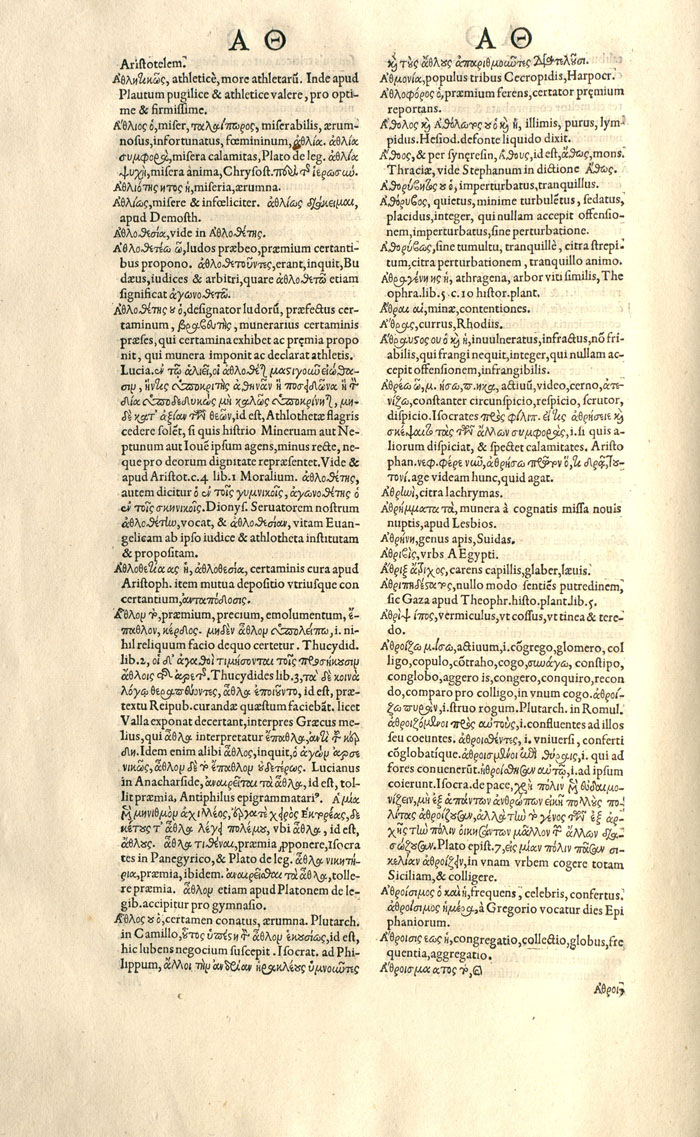 Α Θ
Α Θ
Aristotelem.
Ἀθλητικῶς, athleticè, more athletarũ. Inde apud
Plautum pugilice & athletice valere, pro opti-
me & firmissime.
Ἄθλιος ὁ, miser, ταλαίπωρος, miserabilis, ærum-
nosus, infortunatus, fœmininum, ἀθλία. ἀθλία
συμφορὰ, misera calamitas, Plato de leg. ἀθλία
ψυχὴ, misera anima, Chrysost.
Ἀθλιότης ητος ἡ, miseria, ærumna.
Ἀθλίως, misere & infœliciter. ἀθλίως διάκειμαι,
apud Demosth.
Ἀθλοθεσία, vide in Ἀθλοθέτης.
Ἀθλοθετέω ῶ, ludos præbeo, præmium certanti-
bus propono. ἀθλοθετοῦντες, erant, inquit, Bu
dæus, iudices & arbitri, quare ἀθλοθετῶ etiam
significat ἀγωνοθετῶ.
Ἀθλοθέτης ȣ ὁ, designator ludorũ, præfectus cer-
taminum, βραβευτὴς, munerarius certaminis
præses, qui certamina exhibet ac pręmia propo
nit, qui munera imponit ac declarat athletis.
Lucia.
id est, Athlothetæ flagris
cedere solẽt, si quis histrio Mineruam aut Ne-
ptunum aut Iouẽ ipsum agens, minus recte, ne-
que pro deorum dignitate repræsentet. Vide &
apud Aristot. c. 4 lib. 1 Moralium. ἀθλοθέτης,
autem dicitur ὁ ἐν τοῖς γυμνικοῖς, ἀγωνοθέτης ὁ
ἐν τοῖς σκηνικοῖς. Dionys. Seruatorem nostrum
ἀθλοθέτην, vocat, & ἀθλοθεσίαν, vitam Euan-
gelicam ab ipso iudice & athlotheta institutam
& propositam.
Ἀθλοθεκία ας ἡ, ἀθλοθεσία, certaminis cura apud
Aristoph. item mutua depositio vtriusque con
certantium, ἀνταπόδοσις.
Ἆθλον τὸ, præmium, precium, emolumentum, ἔ-
παθλον, κέρδος. μηδὲν ἆθλον ὑπολείπω, i. ni-
hil reliquum facio dequo certetur. Thucydid.
lib. 2, οἱ δ' ἀγαθοὶ τιμήσονται τοῖς προσήκουσιν
ἄθλοις τῆς ἀρετῆς. Thucydides lib. 3, τὰ δὲ κοινὰ
λόγῳ θεραπεύοντες, ἆθλα ἐποιοῦντο, id est, præ-
textu Reipub. curandæ quæstum faciebãt. licet
Valla exponat decertant, interpres Græcus me-
lius, qui ἆθλα interpretatur ἔπαθλα, ἀντὶ τοῦ κέρ
δη. Idem enim alibi ἆθλος, inquit, ὁ ἀγὼν ἀρσε
νικῶς, ἆθλον δὲ τὸ ἔπαθλον ȣδετέρως. Lucianus
in Anacharside, ἀναιρεῖται τὰ ἆθλα, id est, tol-
lit præmia, Antiphilus epigrammatari⁹.
vbi ἆθλα, id est,
ἄθλους. ἆθλα τιθέναι, præmia ꝓponere, Isocra
tes in Panegyrico, & Plato de leg. ἆθλα νικητή-
ρια, præmia, ibidem. ἀναιρεῖσθαι τὰ ἆθλα, tolle-
re præmia. ἆθλον etiam apud Platonem de le-
gib. accipitur pro gymnasio.
Ἆθλος ȣ ὁ, certamen conatus, ærumna. Plutarch.
in Camillo, id est,
hic lubens negocium suscepit. Isocrat. ad Phi-
lippum, ἄλλοι τὴν ἀνδρίαν ἡρακλέους ὑμνοῦντες
καὶ τοὺς ἄθλους ἀπαριθμοῦντες διατελοῦσι.
Ἀθμονία, populus tribus Cecropidis, Harpocr.
Ἀθλοφόρος ὁ, præmium ferens, certator pręmium
reportans.
Ἄθολος καὶ Ἀθόλωτος ȣ ὁ καὶ ἡ, illimis, purus, lym-
pidus. Hesiod. de fonte liquido dixit.
Ἄθοος, & per syncresin, Ἄθους, id est, ἄθως, mons
Thraciæ, vide Stephanum in dictione Ἄθως.
Ἀθορύβητος ȣ ὁ, imperturbatus, tranquillus.
Ἀθόρυβος, quietus, minime turbulẽtus, sedatus,
placidus, integer, qui nullam accepit offensio-
nem, imperturbatus, sine perturbatione.
Ἀθορύβως, sine tumultu, tranquillè, citra strepi-
tum, citra perturbationem, tranquillo animo.
Ἀθραγένης ἡ, athragena, arbor viti similis, The
ophra. lib. 5. c. 10 histor. plant.
Ἄθραι αἱ, minæ, contentiones.
Ἄθρας, currus, Rhodiis.
Ἄθραυστος ου ὁ καὶ ἡ, inuulneratus, infractus, nõ fri-
abilis, qui frangi nequit, integer, qui nullam ac-
cepit offensionem, infrangibilis.
Ἀθρέω ῶ, μ. ήσω, π. ηκα, actiuũ, video, cerno, ἀτε-
νίζω, constanter circunspicio, respicio, scrutor,
dispicio. Isocrates πρὸς φίλιπ. εἴ τις ἀθρήσειε καὶ
σκέψαιτο τὰς τῶν ἄλλων συμφορὰς, i. si quis a-
liorum dispiciat, & spectet calamitates. Aristo
phan. νεφ. φέρε νυν, ἀθρήσω πρῶτον ὅ, τι δρᾷ, του-
τονί. age videam hunc, quid agat.
Ἀθρηνὶ, citra lachrymas.
Ἀθρήμματα τὰ, munera à cognatis missa nouis
nuptis, apud Lesbios.
Ἀθρήνη, genus apis, Suidas.
Ἀθριβὶς, vrbs Aegypti.
Ἄθριξ ἄτριχος, carens capillis, glaber, læuis.
Ἀθριπηδέστατος, nullo modo sentiẽs putredinem,
sic Gaza apud Theophr. histo. plant. lib. 5.
Ἄθριψ ιπος, vermiculus, vt cossus, vt tinea & tere-
do.
Ἀθροίζω μ. ίσω, actiuum, i. cõgrego, glomero, col
ligo, copulo, cõtraho, cogo, συνάγω, constipo,
conglobo, aggero is, congero, conquiro, recon
do, comparo pro colligo, in vnum cogo. ἀθροί-
ζω πυρὰν, i. struo rogum. Plutarch. in Romul.
ἀθροιζόμενοι πρὸς αὐτοὺς, i. confluentes ad illos
seu coeuntes. ἀθροισθέντες, i. vniuersi, conferti
cõglobatíque. ἀθροισμένοι ἐπὶ θύραις, i. qui ad
fores conuenerũt. ἠθροίσθησαν αὐτῷ, i. ad ipsum
coierunt. Isocra. de pace, χρὴ πόλιν μὲν εὐδαιμο-
νίζειν, μὴ ἐξ ἁπάντων ἀνθρώπων εἰκῆ πολλοὺς πο-
λίτας ἀθροίζουσαν, ἀλλὰ τὴν τὸ γένος τῶν ἐξ ἀρ-
χῆς τὴν πόλιν οἰκισάντων μᾶλλον τῶν ἄλλων δια-
σώζουσαν. Plato epist. 7, εἰς μίαν πόλιν πᾶσαν σι-
κελίαν ἀθροίζειν, in vnam vrbem cogere totam
Siciliam, & colligere.
Ἀθροίσιμος ὁ καὶ ἡ, frequens, celebris, confertus.
ἀθροίσιμος ἡμέρα, à Gregorio vocatur dies Epi
phaniorum.
Ἄθροισις εως ἡ, congregatio, collectio, globus, fre
quentia, aggregatio.
Ἄθροισμα ατος τὸ, &
Ἀθροι-